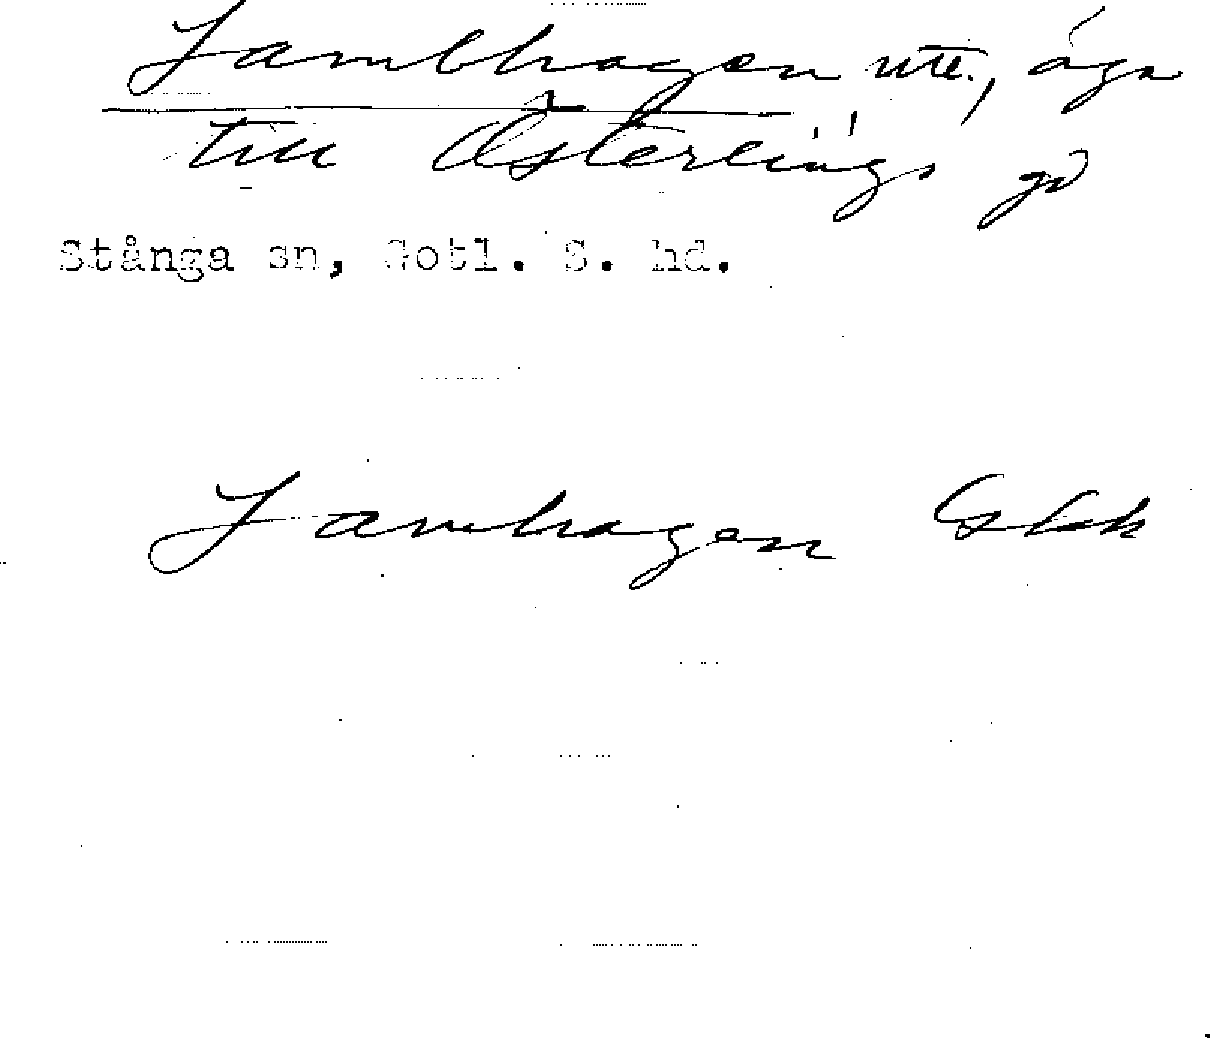 Lambhagen ute., äga
till Österlings gd
Stånga sn, Gotl. S. hd.
Lamhagen Gskk